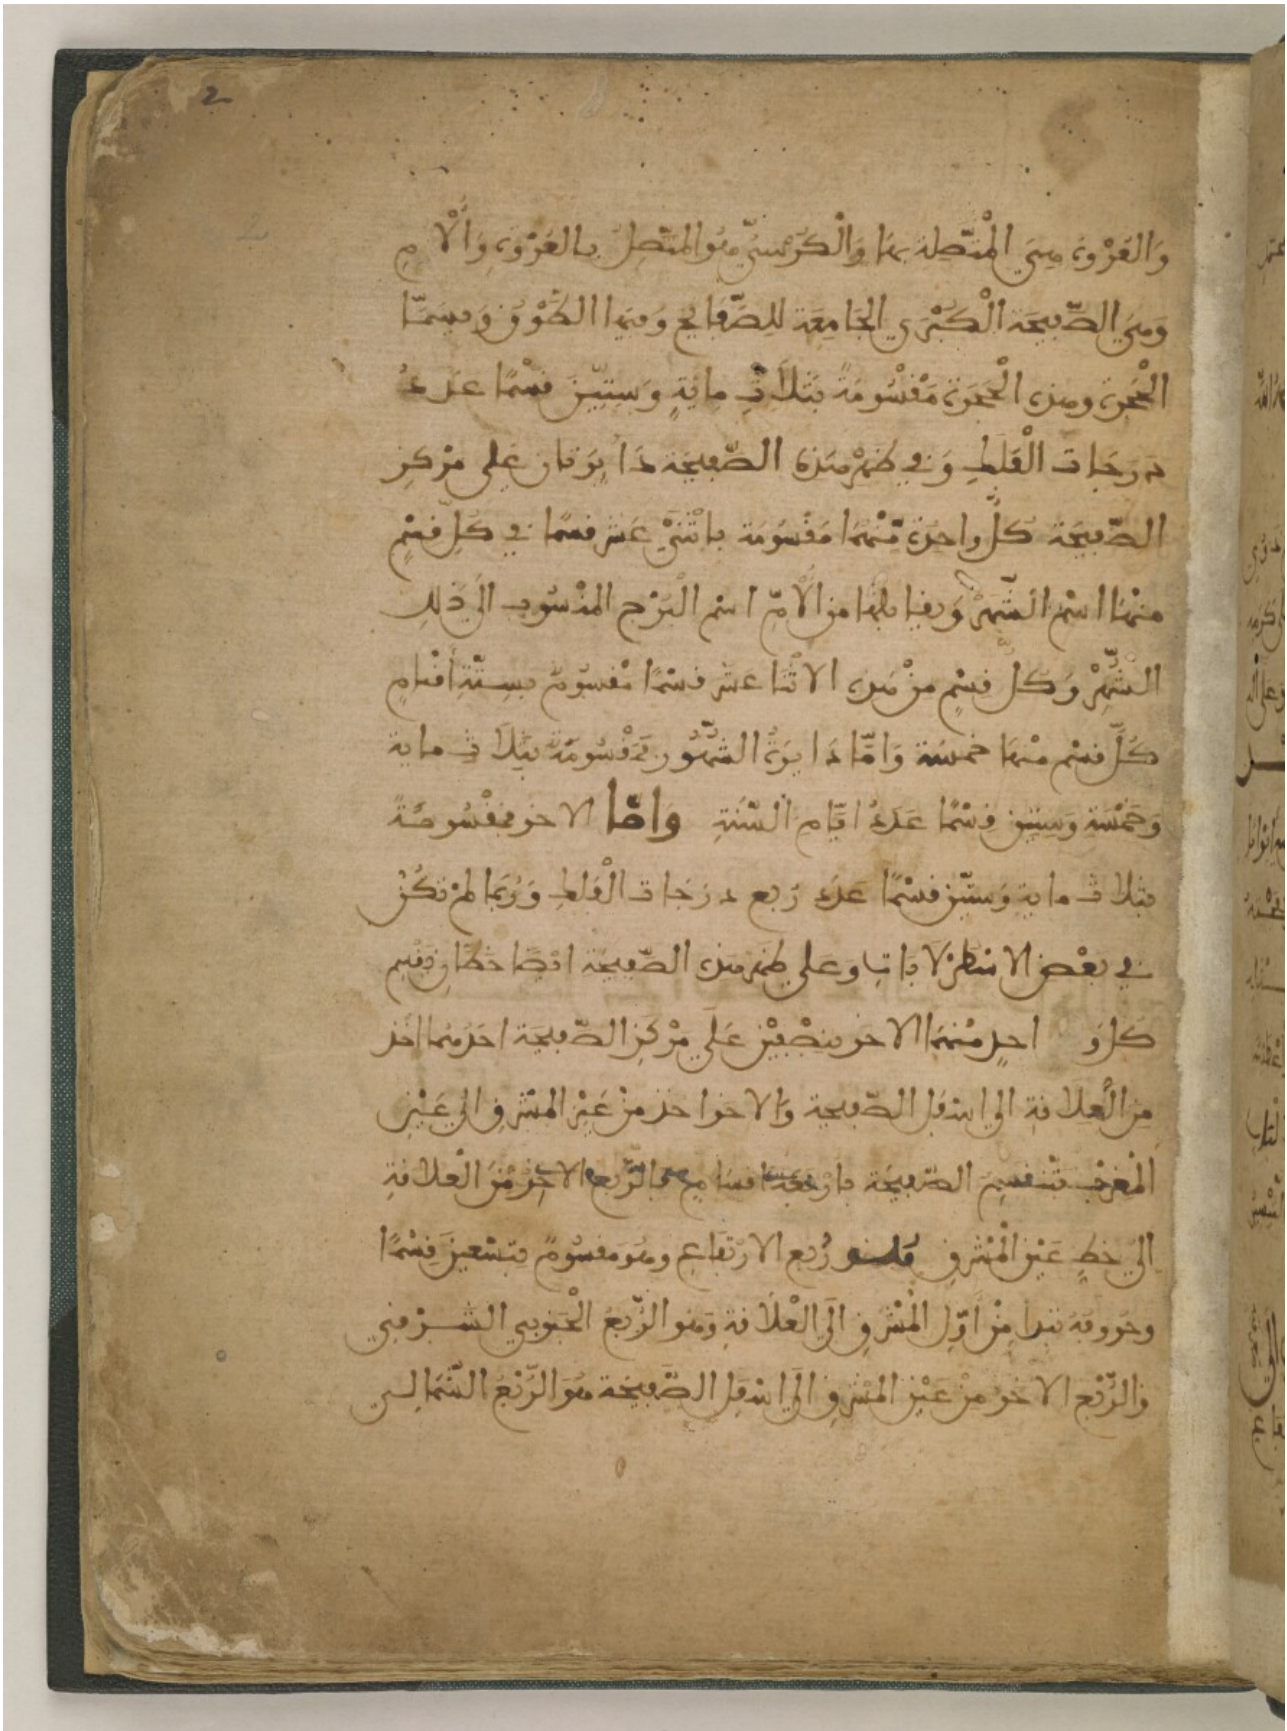 2
2
وَالعُرْوَة هِيَ الْمُتَّصِلة بهَا وَالْكُرْسِيّ هُوَ المتّصِلُ بالعُرْوَةِ وَالْأُم
وَهِيَ الصَّفِيحَة الْكُبْرَي الجَامِعَة لِلصَّفَايِح وَفِيهَا الطَّوْق وَيسَمّا
الْحُجْرَة وهذه الْحُجْرَة مَقْسُومَةً بثَلاَثِ مِايَةٍ وَسِتِّين قِسْمًا عَدَدُ
دَرَجَات الْفَلَكِ وَفِي ظَهْر هَذِهِ الصَّفِيحَة دَايِرَتان عَلى مرْكزِ
الصَّفِيحَة كلّ واحدة مّنْهُمَا مَقْسُومَة باثْنَيْ عشر قسمًا في كُلّ قسْمٍ
منهَا اسْم الشَّهْرْ وَيقابلهَا من الأمّ اسم الْبُرْج المنْسُوب الَى ذَلك
الشَّهْرْ وَكُلّ قسْمٍ مِنْ هَذِه الاثْنَا عشر قسْمًا مقْسُومٌ بسِتّةِ أقْسَامٍ
كُلّ قسْم منْهَا خمسَة وَامّا دَايرَةُ الشُّهُور فَمَقْسُومَةٌ بثَلاثِ ماية
وَخَمْسَة وَسِتين قِسْمًا عَدَدُ ايّام السّنَةِ وَامّا الاخرى فمقْسُومَةً
بثلاث ماية وَستّين قسْمًا عَدَد رُبع درَجَات الْفَلكِ وَرُبّمَا لمْ تكُنْ
في بعْض الاسْطرْلاَبَاتِ وَعلى ظهر هذه الصّفيحَة ايْضًا خطّانِ يقْسِم
كل وَاحدٍ منْهمَا الاخر بنصْفيْن عَلَى مرْكزِ الصّفِيحَة احَدهُمَا اخذ
مِن الْعِلاقةِ الي اسْفَل الصّفيحة وَالاخر اخذ منْ عَيْن المشْرقِ الي عَيْن
الْمغْرب فتنقسِمَ الصّفيحَة بارْبعَة اقسَام فالرّبع الاخذ مْنَ الْعلاقةِ
الىَ خطِ عَيْن الْمشْرقِ هُوَ رُبع الارْتفَاع وهُوَ مَقسُومٌ بتسْعِينَ قِسْمًا
وحرُوفهُ تبْدَا مِنْ أوّلِ الْمشْرق الَى الْعلاَقةِ وَهُوَ الرّبعُ الْجَنوبي الشَّرْقي
والرّبْع الاخر منْ عَيْن المشْرقِ الَي اسْفَل الصّفيحَة هُوَ الرّبْعُ الشّمَالي